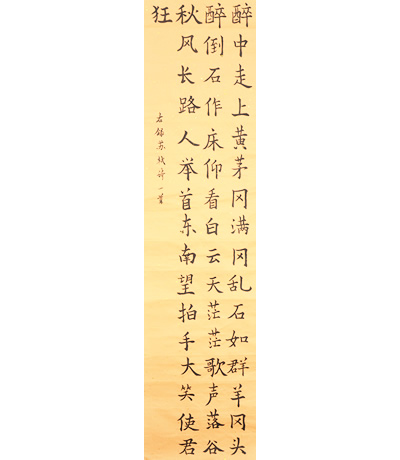 醉中走上黄茅冈满冈乱石如群羊冈头
醉倒石作床仰看白云天茫茫歌声落谷
秋风长路人举首东南望拍手大笑使君
狂
右录苏轼诗一首